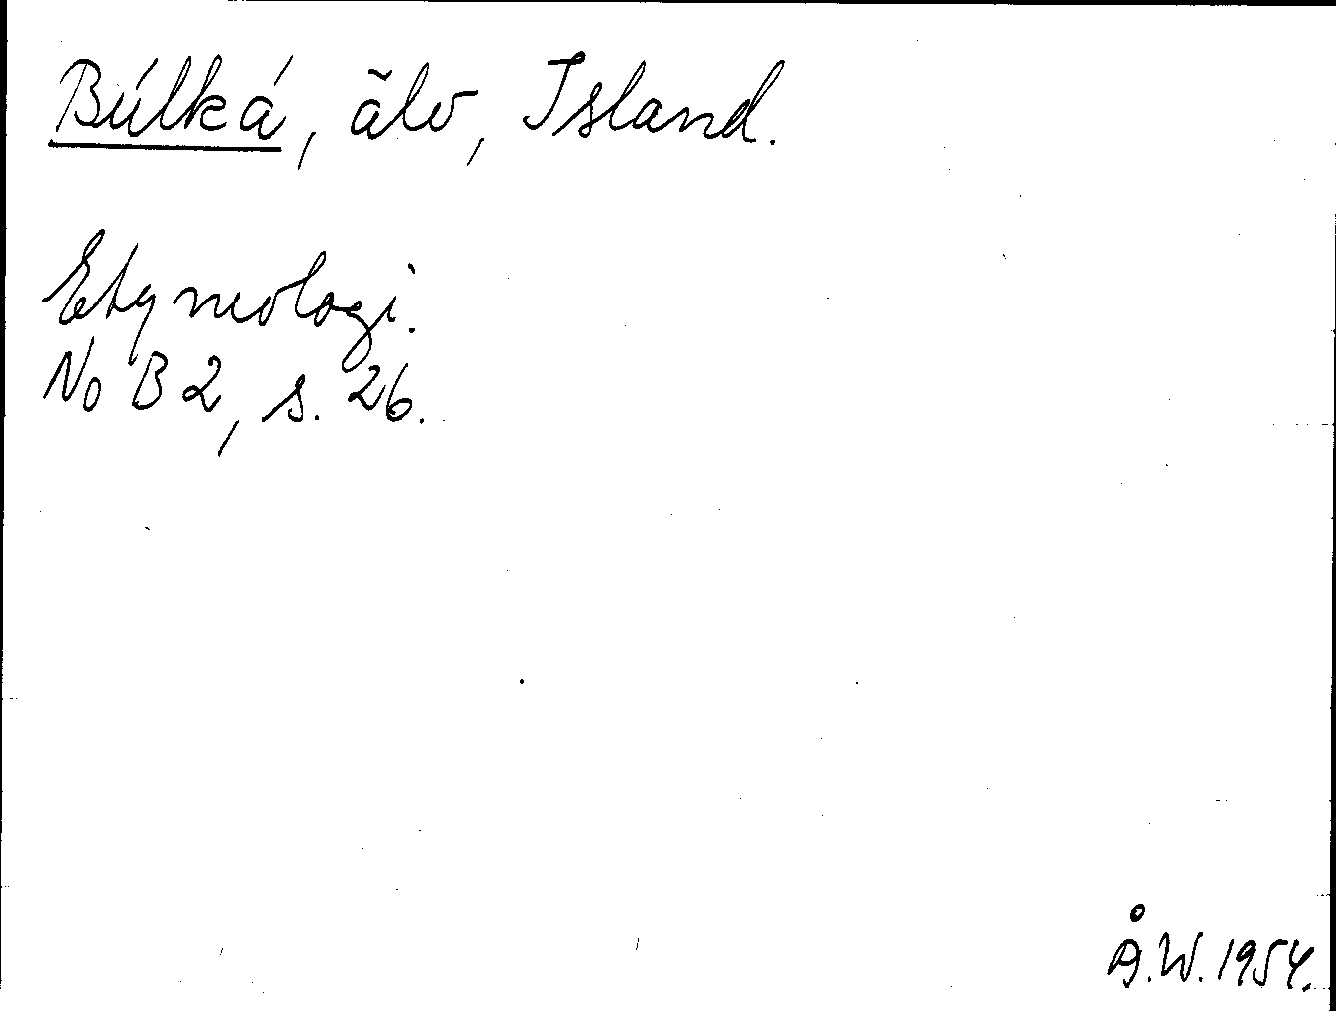 Búlká, älv, Island.
Etymologi.
NoB 2, s. 26.
Å.W. 1954.